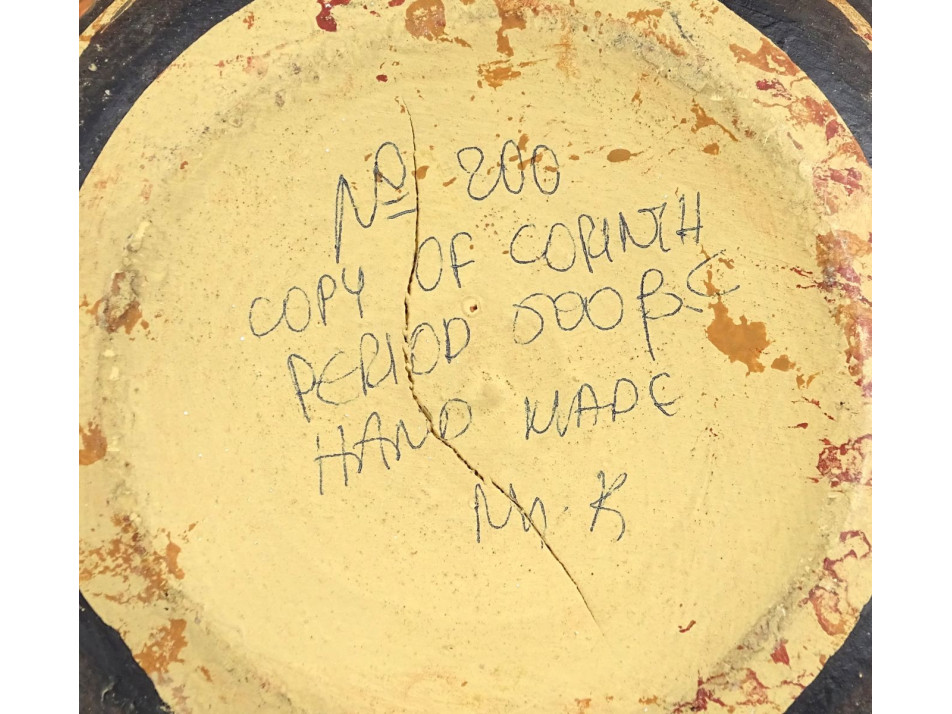 Nº 200
COPY OF CORINTH
PERIOD 500 BC
HAND MADE